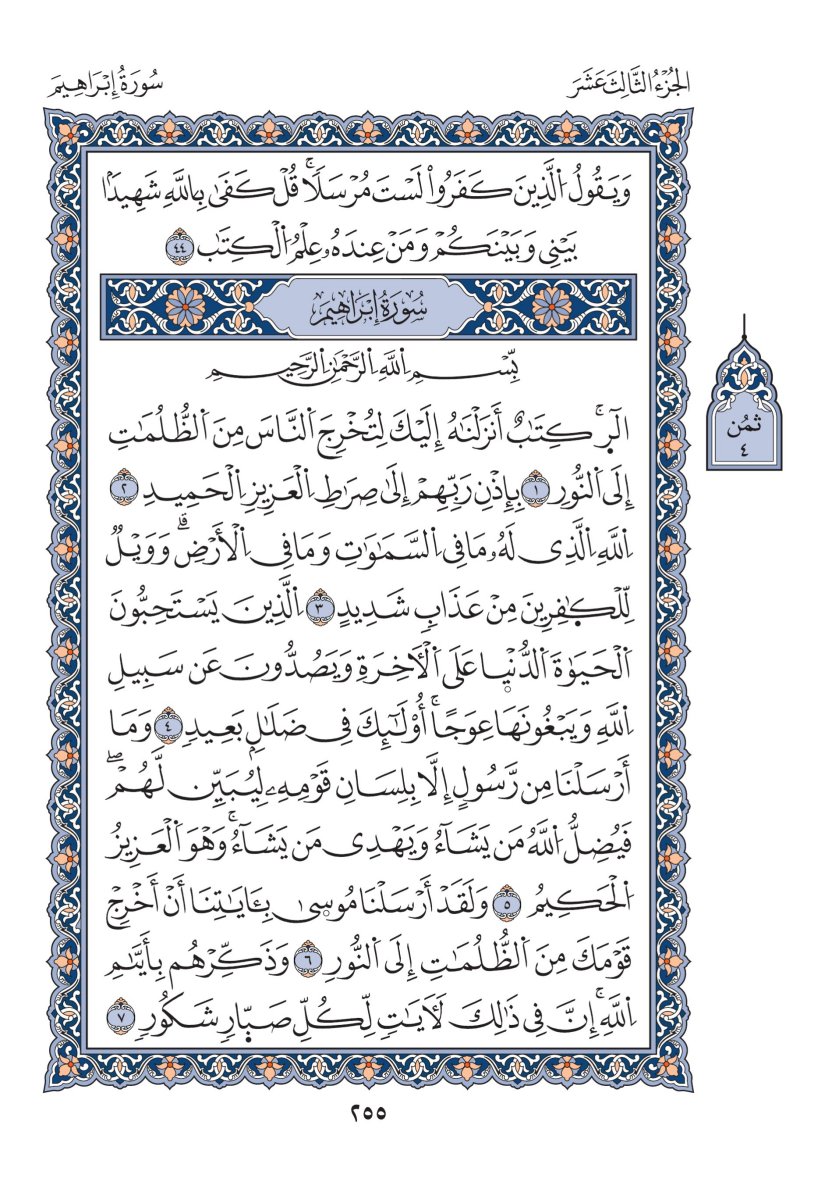 الجُزْءُ الثَّالِثَ عَشَرَ
سُورَةُ إِبْرَاهِيمَ
وَيَقُولُ اُ۬لَّذِينَ كَفَرُواْ لَسْتَ مُرْسَلٗاۚ قُلْ كَفَىٰ بِاللَّهِ شَهِيدَۢا
بَيْنِي وَبَيْنَكُمْ وَمَنْ عِندَهُۥ عِلْمُ اُ۬لْكِتَٰبِ ٤٤
سُورَةُ إِبْرَاهِيمَ
بِسْمِ اِ۬للَّهِ اِ۬لرَّحْمَٰنِ اِ۬لرَّحِيمِ
أَلَٓرۚ كِتَٰبٌ أَنزَلْنَٰهُ إِلَيْكَ لِتُخْرِجَ اَ۬لنَّاسَ مِنَ اَ۬لظُّلُمَٰتِ
إِلَى اَ۬لنُّورِ ١ بِإِذْنِ رَبِّهِمْ إِلَىٰ صِرَٰطِ اِ۬لْعَزِيزِ اِ۬لْحَمِيدِ ٢
اِ۬للَّهِ اِ۬لَّذِي لَهُۥ مَا فِي اِ۬لسَّمَٰوَٰتِ وَمَا فِي اِ۬لْأَرْضِۗ وَوَيْلٞ
لِّلْكٰ۪فِرِينَ مِنْ عَذَابٖ شَدِيدٍ ٣ اِ۬لَّذِينَ يَسْتَحِبُّونَ
اَ۬لْحَيَوٰةَ اَ۬لدُّنْيا عَلَى اَ۬لْأٓخِرَةِ وَيَصُدُّونَ عَن سَبِيلِ
اِ۬للَّهِ وَيَبْغُونَهَا عِوَجًاۚ أُوْلَٰٓئِكَ فِي ضَلَٰلِۢ بَعِيدٖ ٤ وَمَا
أَرْسَلْنَا مِن رَّسُولٍ إِلَّا بِلِسَانِ قَوْمِهِۦ لِيُبَيِّن لَّهُمْۖ
فَيُضِلُّ اُ۬للَّهُ مَن يَشَآءُ وَيَهْدِي مَن يَشَآءُۚ وَهْوَ اَ۬لْعَزِيزُ
اُ۬لْحَكِيمُ ٥ وَلَقَدْ أَرْسَلْنَا مُوسىٰ بِـَٔايَٰتِنَا أَنْ أَخْرِجْ
قَوْمَكَ مِنَ اَ۬لظُّلُمَٰتِ إِلَى اَ۬لنُّورِ ٦ وَذَكِّرْهُم بِأَيَّىٰمِ
اِ۬للَّهِۚ إِنَّ فِي ذَٰلِكَ لَأٓيَٰتٖ لِّكُلِّ صَبّ۪ارٖ شَكُورٖ ٧
ثُمُن
٤
٢٥٥